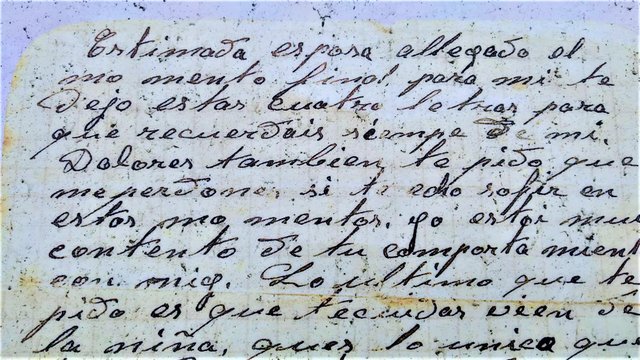 Estimada esposa allegado el
mo mento final para mi te
dejo estas cuatro letras para
que recuerdais siempe de mi.
Dolores tambien te pido que
me perdones si te echo sofir en
estos mo mentos. yo estoi muy
contento de tu comporta mient
con mig. Lo ultimo que te
pido es que tecuidas vien de
la niña, ques lo unico qu